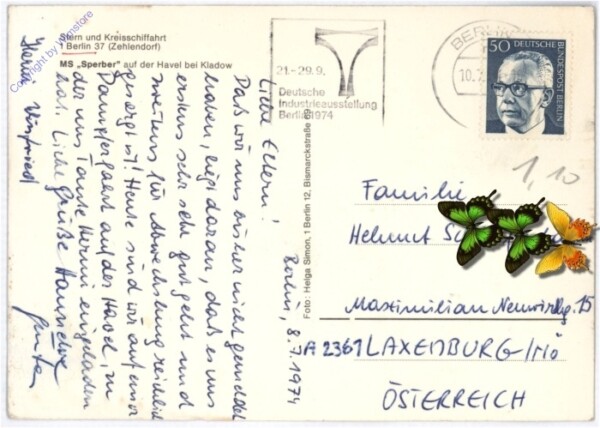 Stern und Kreisschiffahrt
1 Berlin 37 (Zehlendorf)
MS „Sperber" auf der Havel bei Kladow
Berlin, 8.7.1974
Liebe Eltern!
Daß wir uns bisher nicht gemeldet
haben, liegt daran, daß es uns
erstens sehr sehr gut geht und
zweitens für Abwechslung reichlich
gesorgt ist! Heute sind wir auf einer
Dampferfahrt auf der Havel, zu
der uns Tante Hermi eingeladen
hat. Liebe Grüße
Hermi Winfried
Foto: Helga Simon, 1 Berlin 12, Bismarckstraße
21.-29.9.
Deutsche
Industrieausstellung
Berlin 1974
BERLIN
10.7
50 DEUTSCHE
BUNDESPOST BERLIN
1,10
Familie
Helmut
Maximilian Neuwirthg. 15
A 2361 LAXENBURG/NÖ
ÖSTERREICH